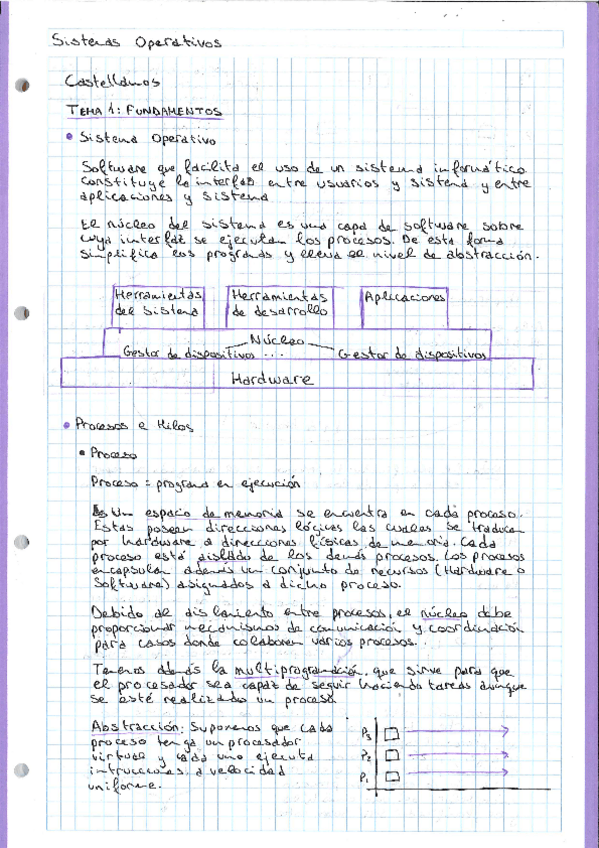 Sistemas Operativos
Castellanos
TEMA 1: FUNDAMENTOS
Sistema Operativo
Software que facilita el uso de un sistema informático
constituye la interfaz entre usuarios y sistema y entre
aplicaciones y sistema
El núcleo del sistema es una capa de software sobre
cuya interfaz se ejecutan los procesos. De esta forma
simplifica los programas y eleva el nivel de abstracción.
Herramientas del Sistema
Herramientas de desarrollo
Aplicaciones
Núcleo
Gestor de dispositivos ... Gestor de dispositivos
Hardware
Procesos e Hilos
Proceso
Proceso = programa en ejecución
Un espacio de memoria se encuentra en cada proceso.
Estas poseen direcciones lógicas las cuales se traducen
por hardware a direcciones físicas de memoria. Cada
proceso está aislado de los demás procesos. Los procesos
encapsulan además un conjunto de recursos (Hardware o
Software) asignados a dicho proceso.
Debido al aislamiento entre procesos, el núcleo debe
proporcionar mecanismos de comunicación y coordinación
para casos donde colaboren varios procesos.
Tenemos además la multiprogramación, que sirve para que
el procesador sea capaz de seguir haciendo tareas aunque
se esté realizando un proceso
Abstracción: Suponemos que cada
proceso tenga un procesador
virtual y cada uno ejecuta
intrucciones a velocidad
uniforme.
P3
P2
P1